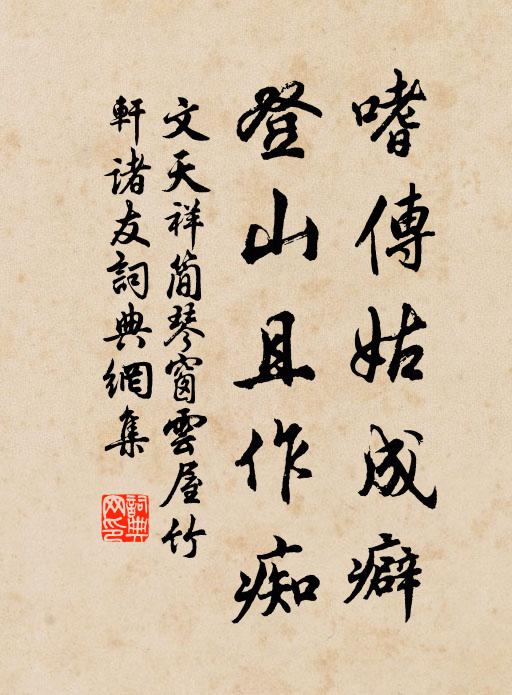 嗜傳姑成癖
登山且作痴
文天祥簡琴窗雲屋竹
軒諸友詞典網集
詞典网印